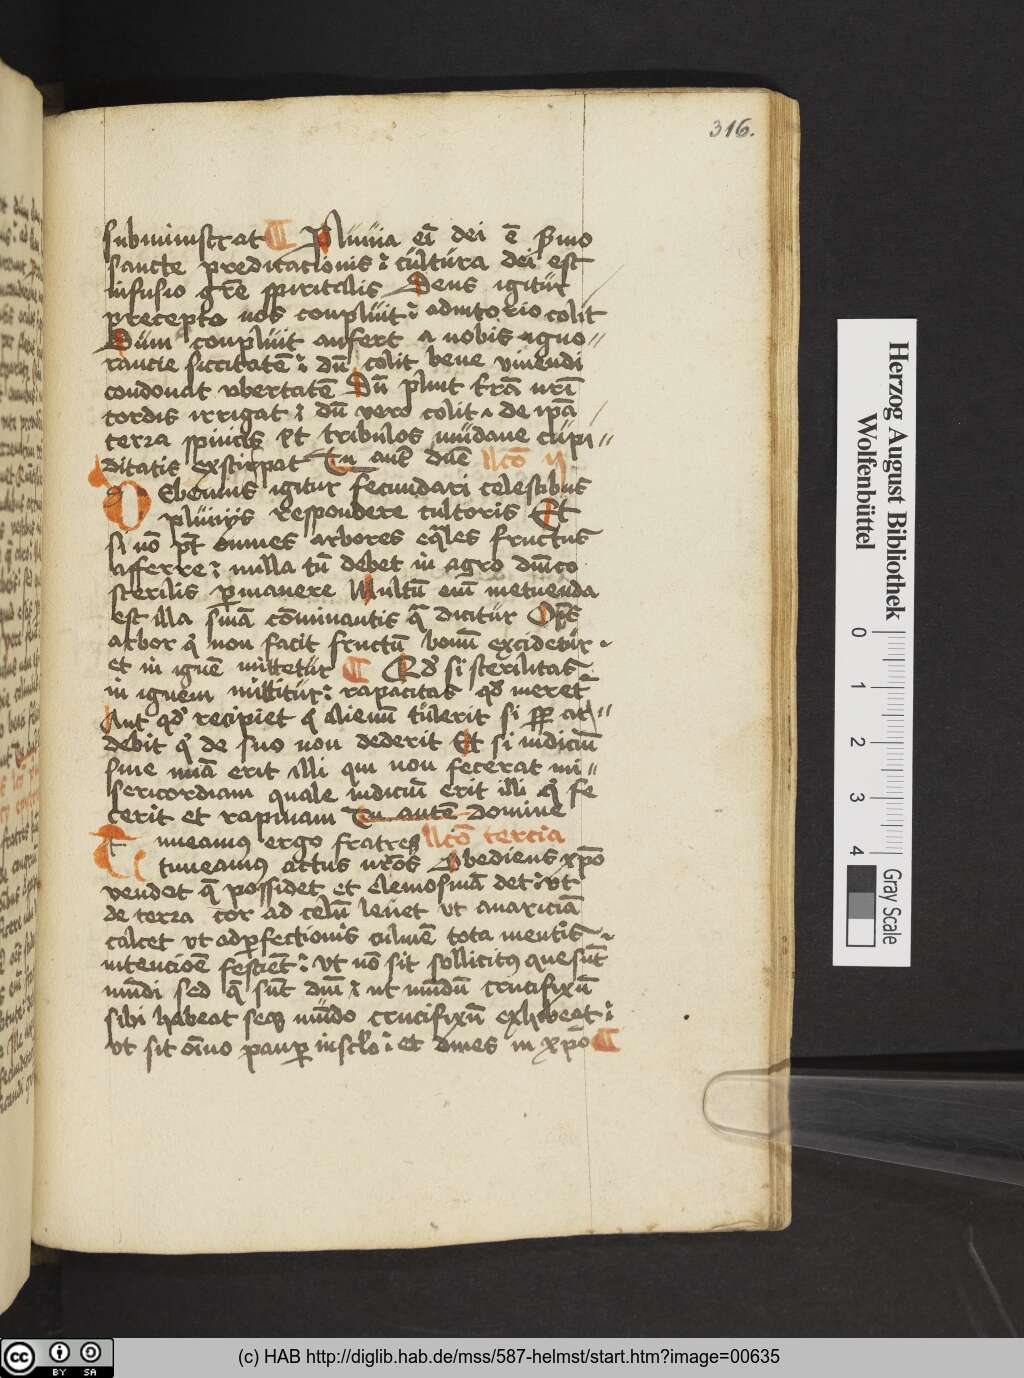 316.
subministrat ¶ Pluuia ei dei ē sermo
sancte predicacionis ⁊ cultura dei est
infusio grē spiritalis Deus igitur
precepto nos conpluit ⁊ adiutorio colit
Dum conpluit aufert a nobis igno//
rancie siccitatē ⁊ dū colit bene viuendi
condonat vbertatē Dū pluit terrā nrī
cordis irrigat ⁊ dū vero colit de ipā
terra spinas et tribulos mūdane cupi//
ditatis exstirpat Tu autē dnē llcō ii
Debemus igitur fecundari celestibus
pluuijs respondere cultoris Et
si nō pt omnes arbores eqles fructus
afferre ⁊ nulla tū debet in agro dnīco
sterilis permanere Multū enī metuenda
est illa snīa cōminantis qua dicitur Oīs
arbor q̄ non facit fructū bonū excidetur
et in ignē mittetur ¶ Qd si sterilitas
in ignem mittitur ⁊ rapacitas qd meretr
Aut qd recipiet q alienū tulerit si semper ar//
debit q de suo non dederit Et si iudiciū
sine mīa erit illi qui non fecerat mi//
sericordiam quale iudiciū erit illi q fe
cerit et rapinam Tu autē domine
Timeamus ergo fratres llcō tercia
timeamus actus nrōs Obediens xpō
vendat q possidet et elemosinā det ⁊ vt
de terra cor ad celū leuet vt auariciā
calcet vt ad perfectionis culmē tota mentis
intencioē festiet ⁊ vt nō sit sollicitus que sunt
mūdi sed q sūt dnī ⁊ ut mūdū crucifixū
sibi habeat seq mūdo crucifixū exhibeat ⁊
vt sit oīno pauper in sclo ⁊ et diues in xpō ¶
Herzog August Bibliothek
Wolfenbüttel
0 1 2 3 4
Gray Scale
cc BY SA
(c) HAB http://diglib.hab.de/mss/587-helmst/start.htm?image=00635